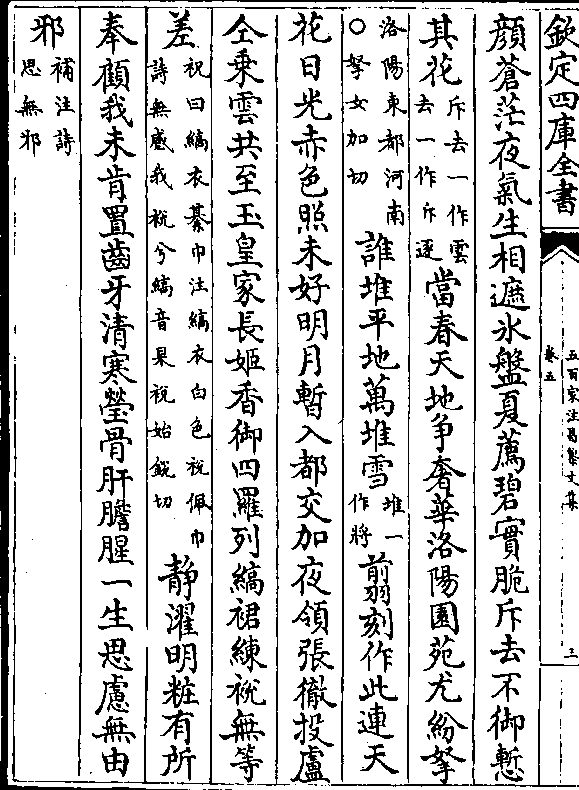 欽定四庫全書
五百家注昌黎文集
卷五
三
顔蒼茫夜氣生相遮氷盤夏薦碧實脆斥去不御慙
其花斥去一作雲去一作斥逐當春天地爭奢華洛陽園苑尤紛拏
洛陽東都河南○拏女加切誰堆平地萬堆雪堆一作將翦刻作此連天
花日光赤色照未好明月暫入都交加夜領張徹投盧
仝乗雲共至玉皇家長姬香御四羅列縞裙練帨無等
差祝曰縞衣綦巾注縞衣白色帨佩巾詩無感我帨兮縞音杲帨始鋭切静濯明粧有所
奉顧我未肯置齒牙清寒瑩骨肝膽腥一生思慮無由
邪補注詩思無邪